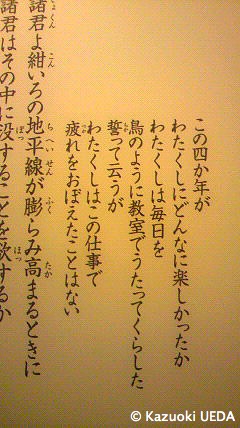 この四か年が
わたくしにどんなに楽しかったか
わたくしは毎日を
鳥のように教室でうたってくらした
誓って云うが
わたくしはこの仕事で
疲れをおぼえたことはない
諸君よ紺いろの地平線が膨らみ高まるときに
諸君はその中に没することを欲するか
© Kazuoki UEDA